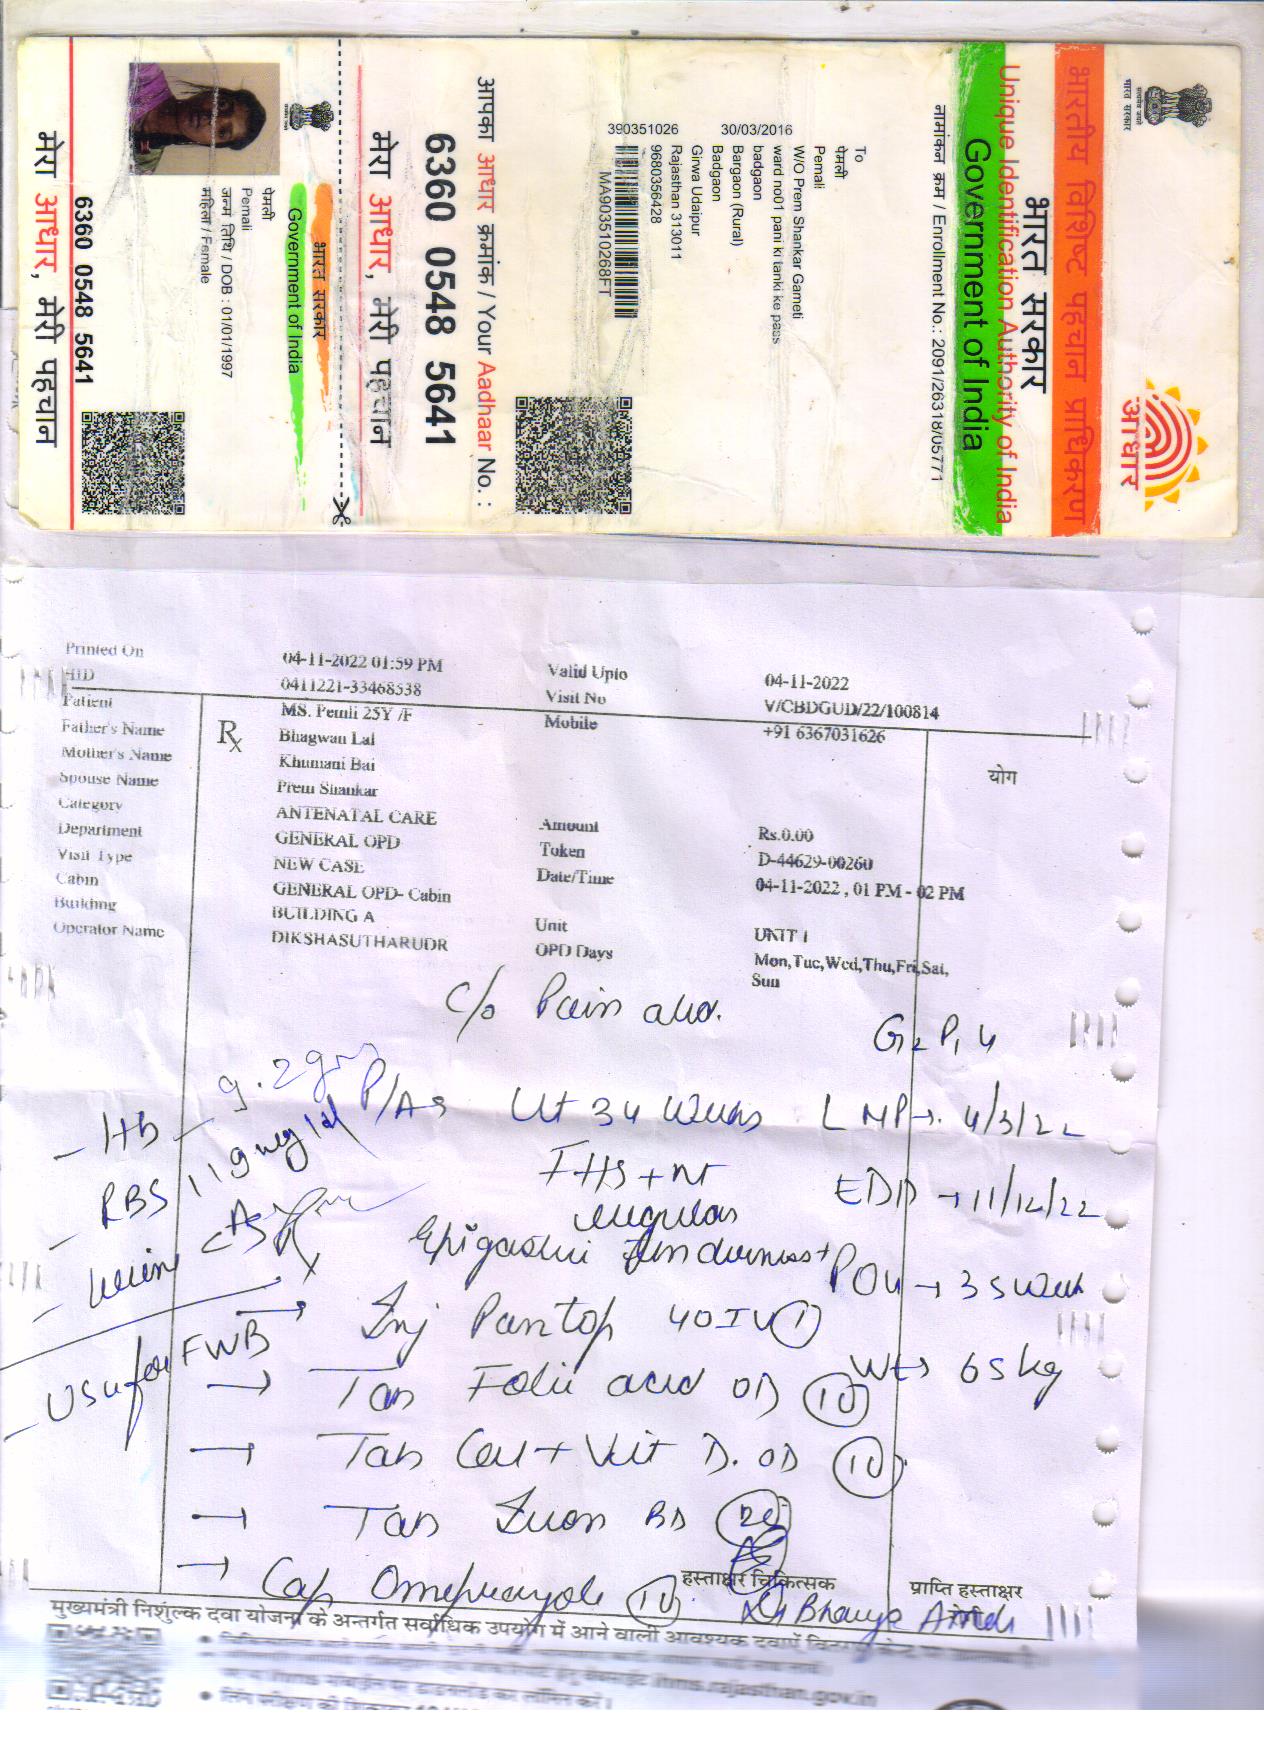 भारतीय विशिष्ट पहचान प्राधिकरण
भारत सरकार
Unique Identification Authority of India
Government of India
आधार
भारत सरकार
नामांकन क्रम / Enrollment No.: 2091/26318/05771
To
पेमली
Pemali
W/O Prem Shankar Gameti
ward no01 pani ki tanki ke pass
badgaon
Bargaon (Rural)
Badgaon
Girwa Udaipur
Rajasthan 313011
9680356428
30/03/2016
390351026
MA903510268FT
आपका आधार क्रमांक / Your Aadhaar No. :
6360 0548 5641
मेरा आधार, मेरी पहचान
भारत सरकार
Government of India
पेमली
Pemali
जन्म तिथि / DOB : 01/01/1997
महिला / Female
6360 0548 5641
मेरा आधार, मेरी पहचान
Printed On 04-11-2022 01:59 PM Valid Upto 04-11-2022
HID 0411221-33468538 Visit No V/CBDGUD/22/100814
Patient MS. Pemli 25Y /F Mobile +91 6367031626
Father's Name Bhagwan Lal
Mother's Name Khumani Bai
Spouse Name Prem Shankar
Category ANTENATAL CARE Amount Rs.0.00
Department GENERAL OPD Token D-44629-00260
Visit Type NEW CASE Date/Time 04-11-2022 , 01 PM - 02 PM
Cabin GENERAL OPD- Cabin
Building BUILDING A Unit UNIT 1
Operator Name DIKSHASUTHARUDR OPD Days Mon,Tue,Wed,Thu,Fri,Sat,
Sun
Rx
योग
c/o Pain abd.
G2 P1
- Hb - 9.2 gm
P/A Ut 34 weeks LMP → 4/3/22
- RBS 119 mg/dl
FHS + nt
regular
EDD → 11/12/22
- Urine
Epigastric Tenderness + POG → 35 week
→ Inj Pantop 40 IV 1
- USG for FWB
Wt → 65 kg
→ Tab Folic acid OD 10
→ Tab Cal + Vit D. OD 10
→ Tab Iron BD 20
→ Cap Omeprazole 10
हस्ताक्षर चिकित्सक प्राप्ति हस्ताक्षर
मुख्यमंत्री निशुल्क दवा योजना के अन्तर्गत सर्वाधिक उपयोग में आने वाली आवश्यक दवाऐं
ihms.rajasthan.gov.in